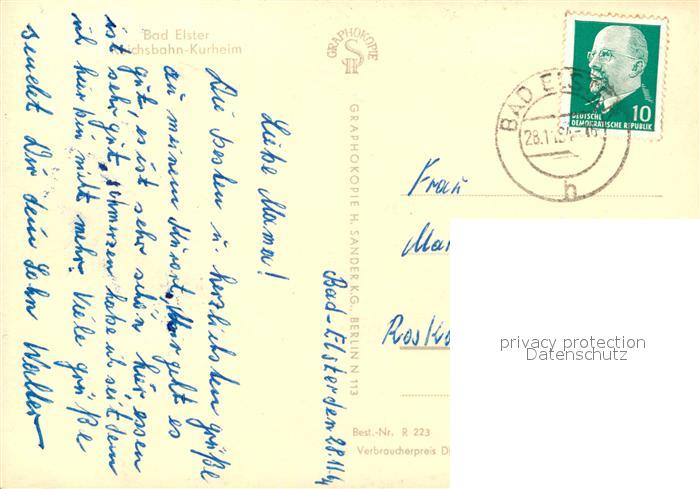 Bad Elster
Reichsbahn-Kurheim
GRAPHOKOPIE
H S
GRAPHOKOPIE H. SANDER K.G., BERLIN N 113
Best.-Nr. R 223
Verbraucherpreis
DEUTSCHE
DEMOKRATISCHE REPUBLIK
10
BAD ELSTER
28.11.64-16
h
Bad-Elster den 28.11.64
Liebe Mama!
Die besten u. herzlichsten Grüße
aus meinem Kurort. Mir geht es
gut, es ist sehr schön hier, essen
ist sehr gut, schmerzen habe ich seit dem
ich hier bin nicht mehr. Viele Grüße
sendet Dir dein Sohn Walter
Frau
privacy protection
Datenschutz